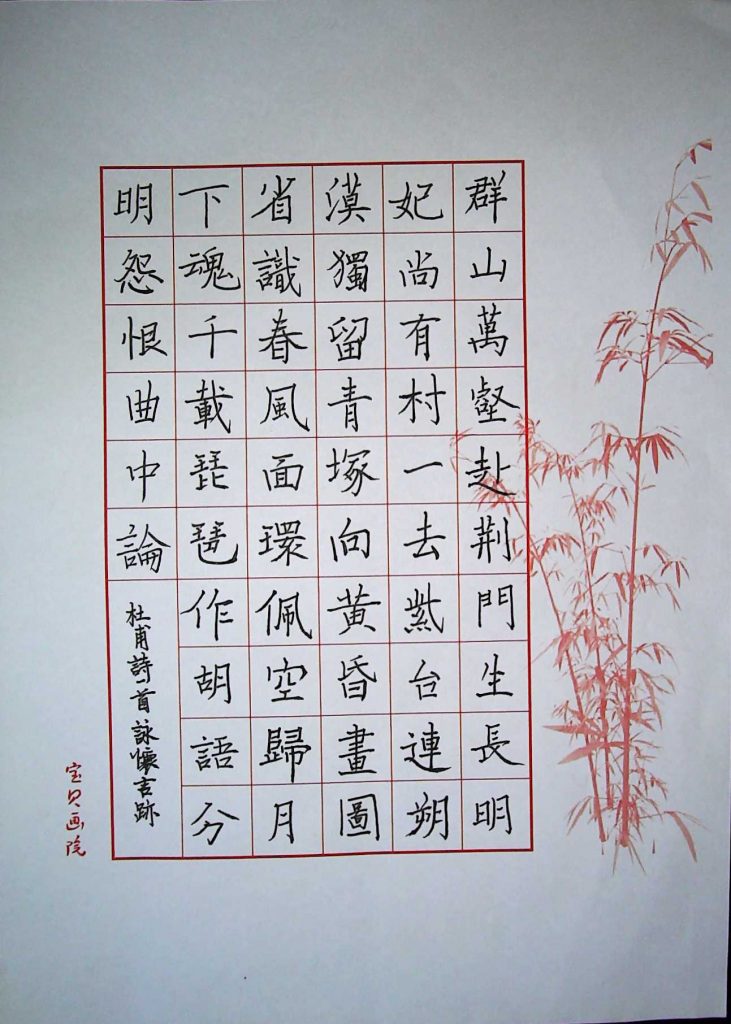 群山萬壑赴荆門生長明
妃尚有村一去紫台連朔
漠獨留青塚向黄昏畫圖
省識春風面環佩空歸月
下魂千載琵琶作胡語分
明怨恨曲中論
杜甫詩一首詠懷古跡
宝贝画院